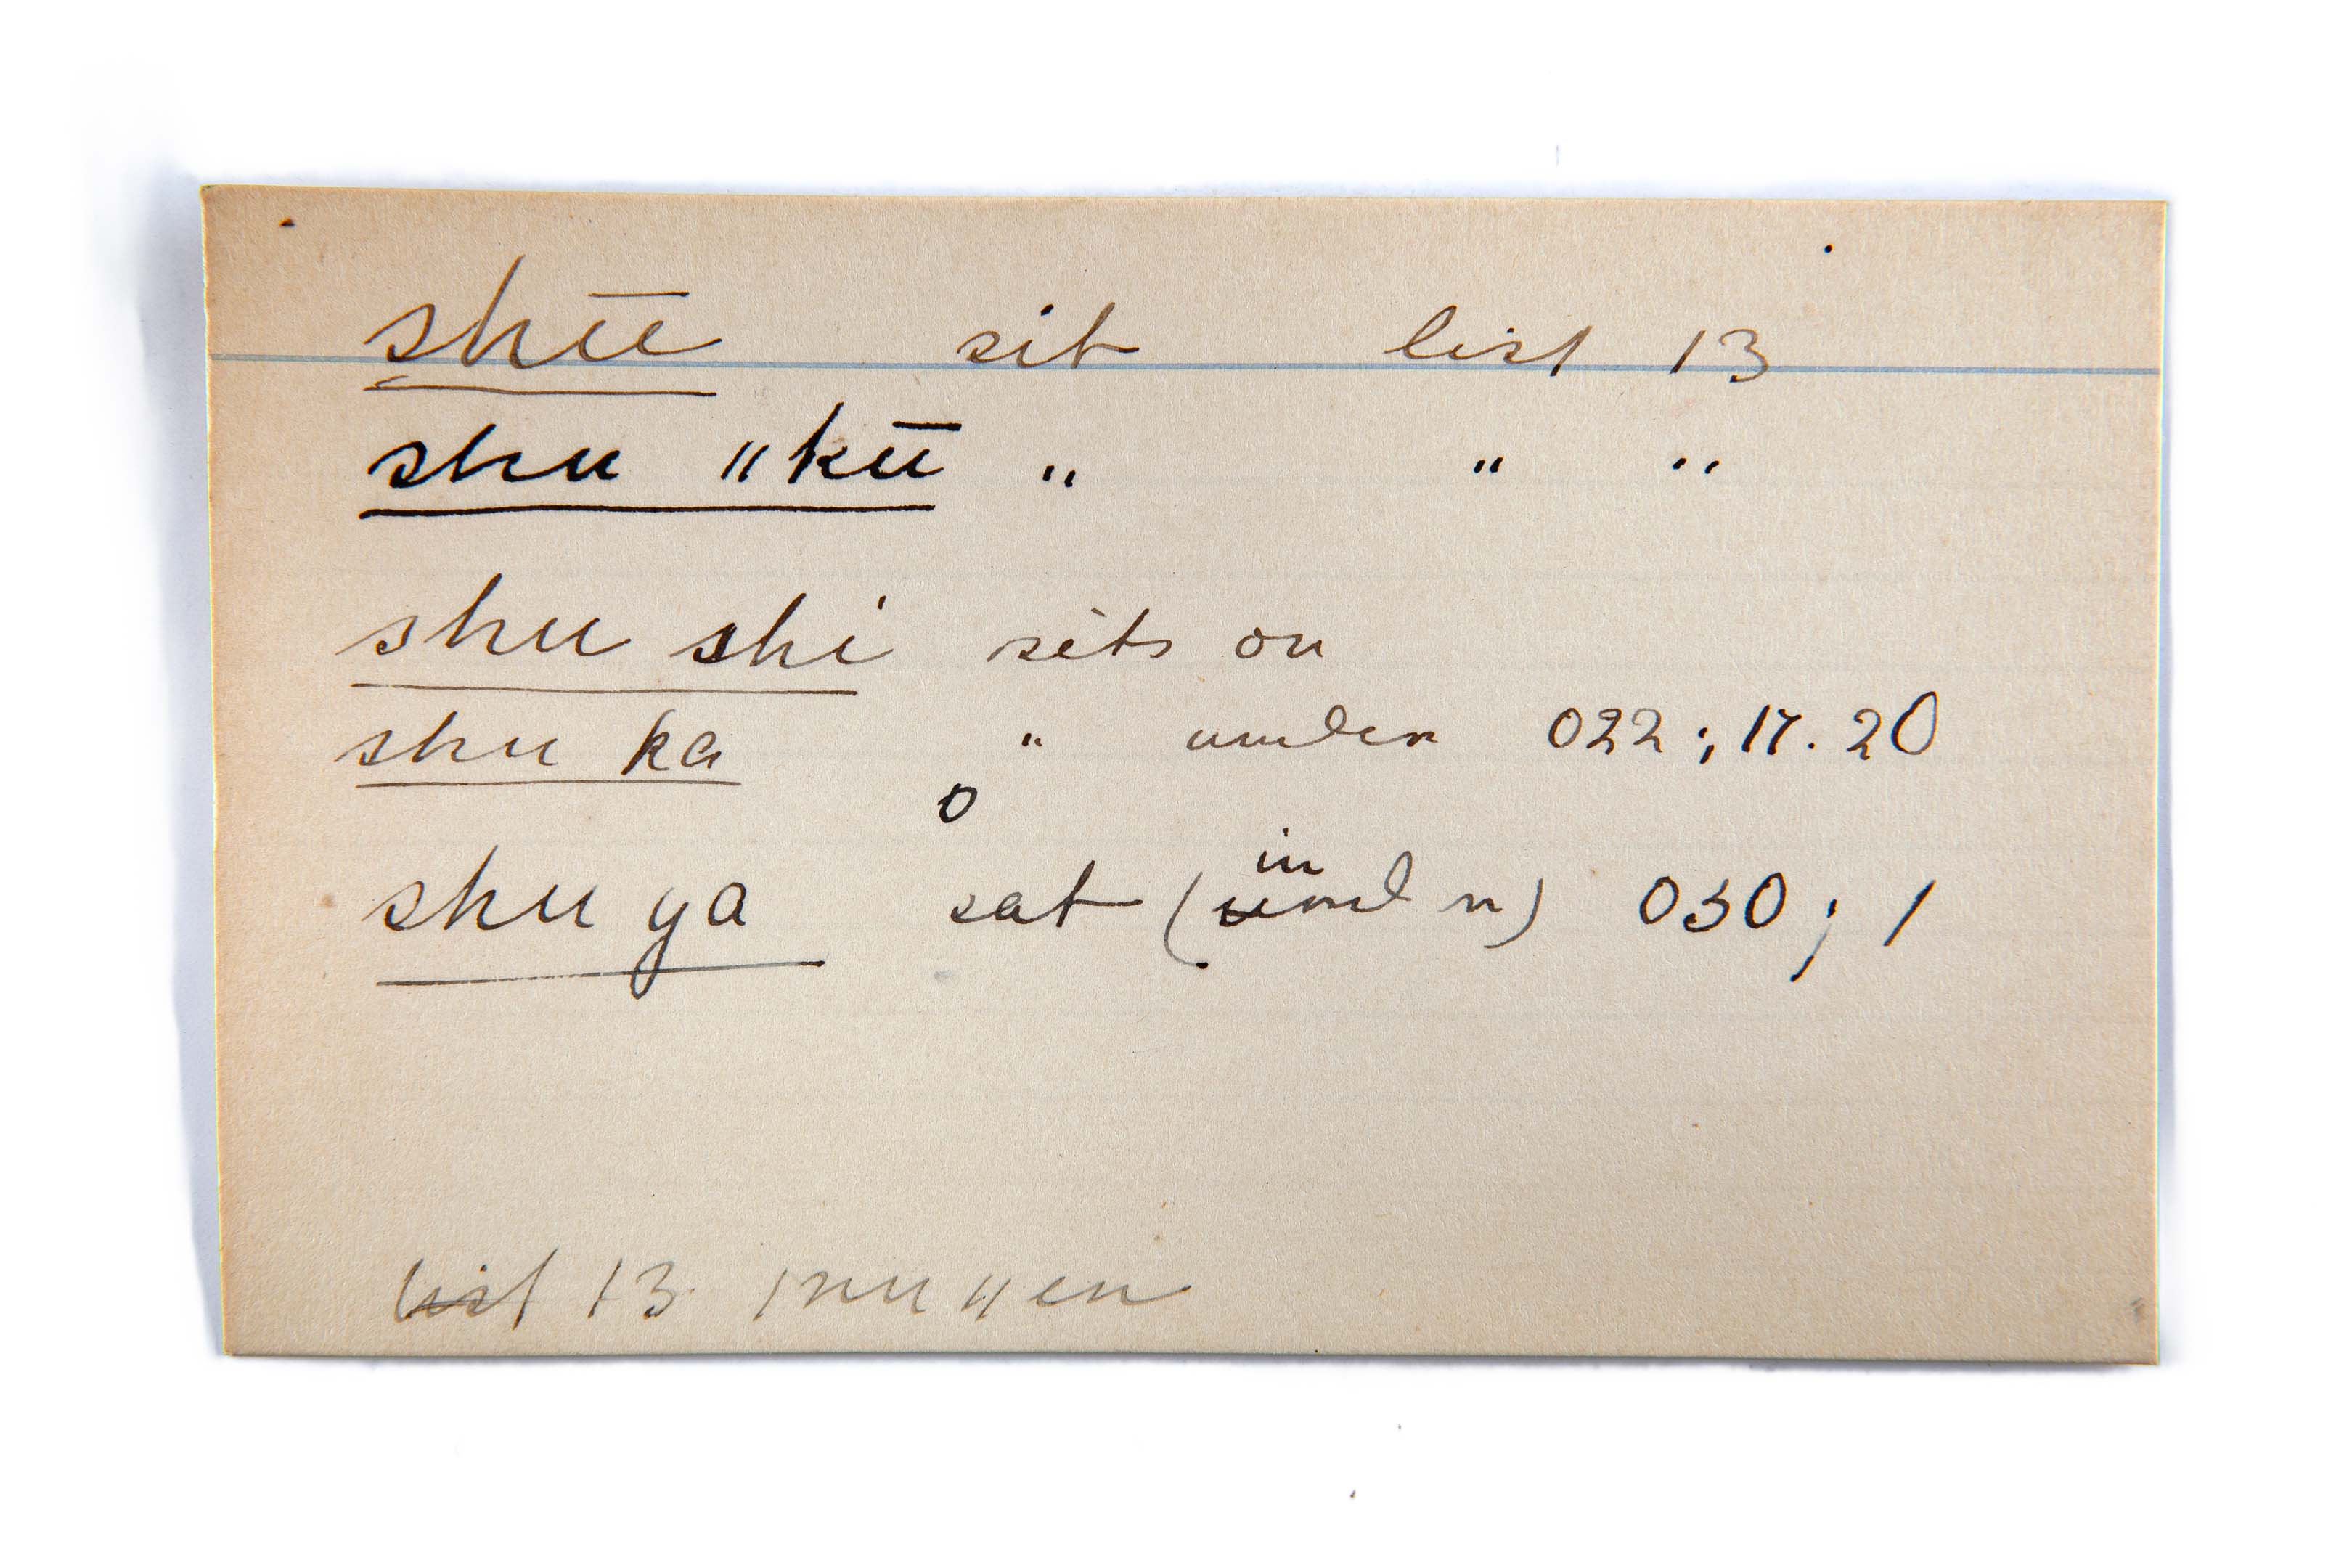 shū sit list 13
shu "kū " " "
shu shi sits on
shu ka " under 022; 17. 20
o
in
shu ya sat (under) 030; 1
list 13